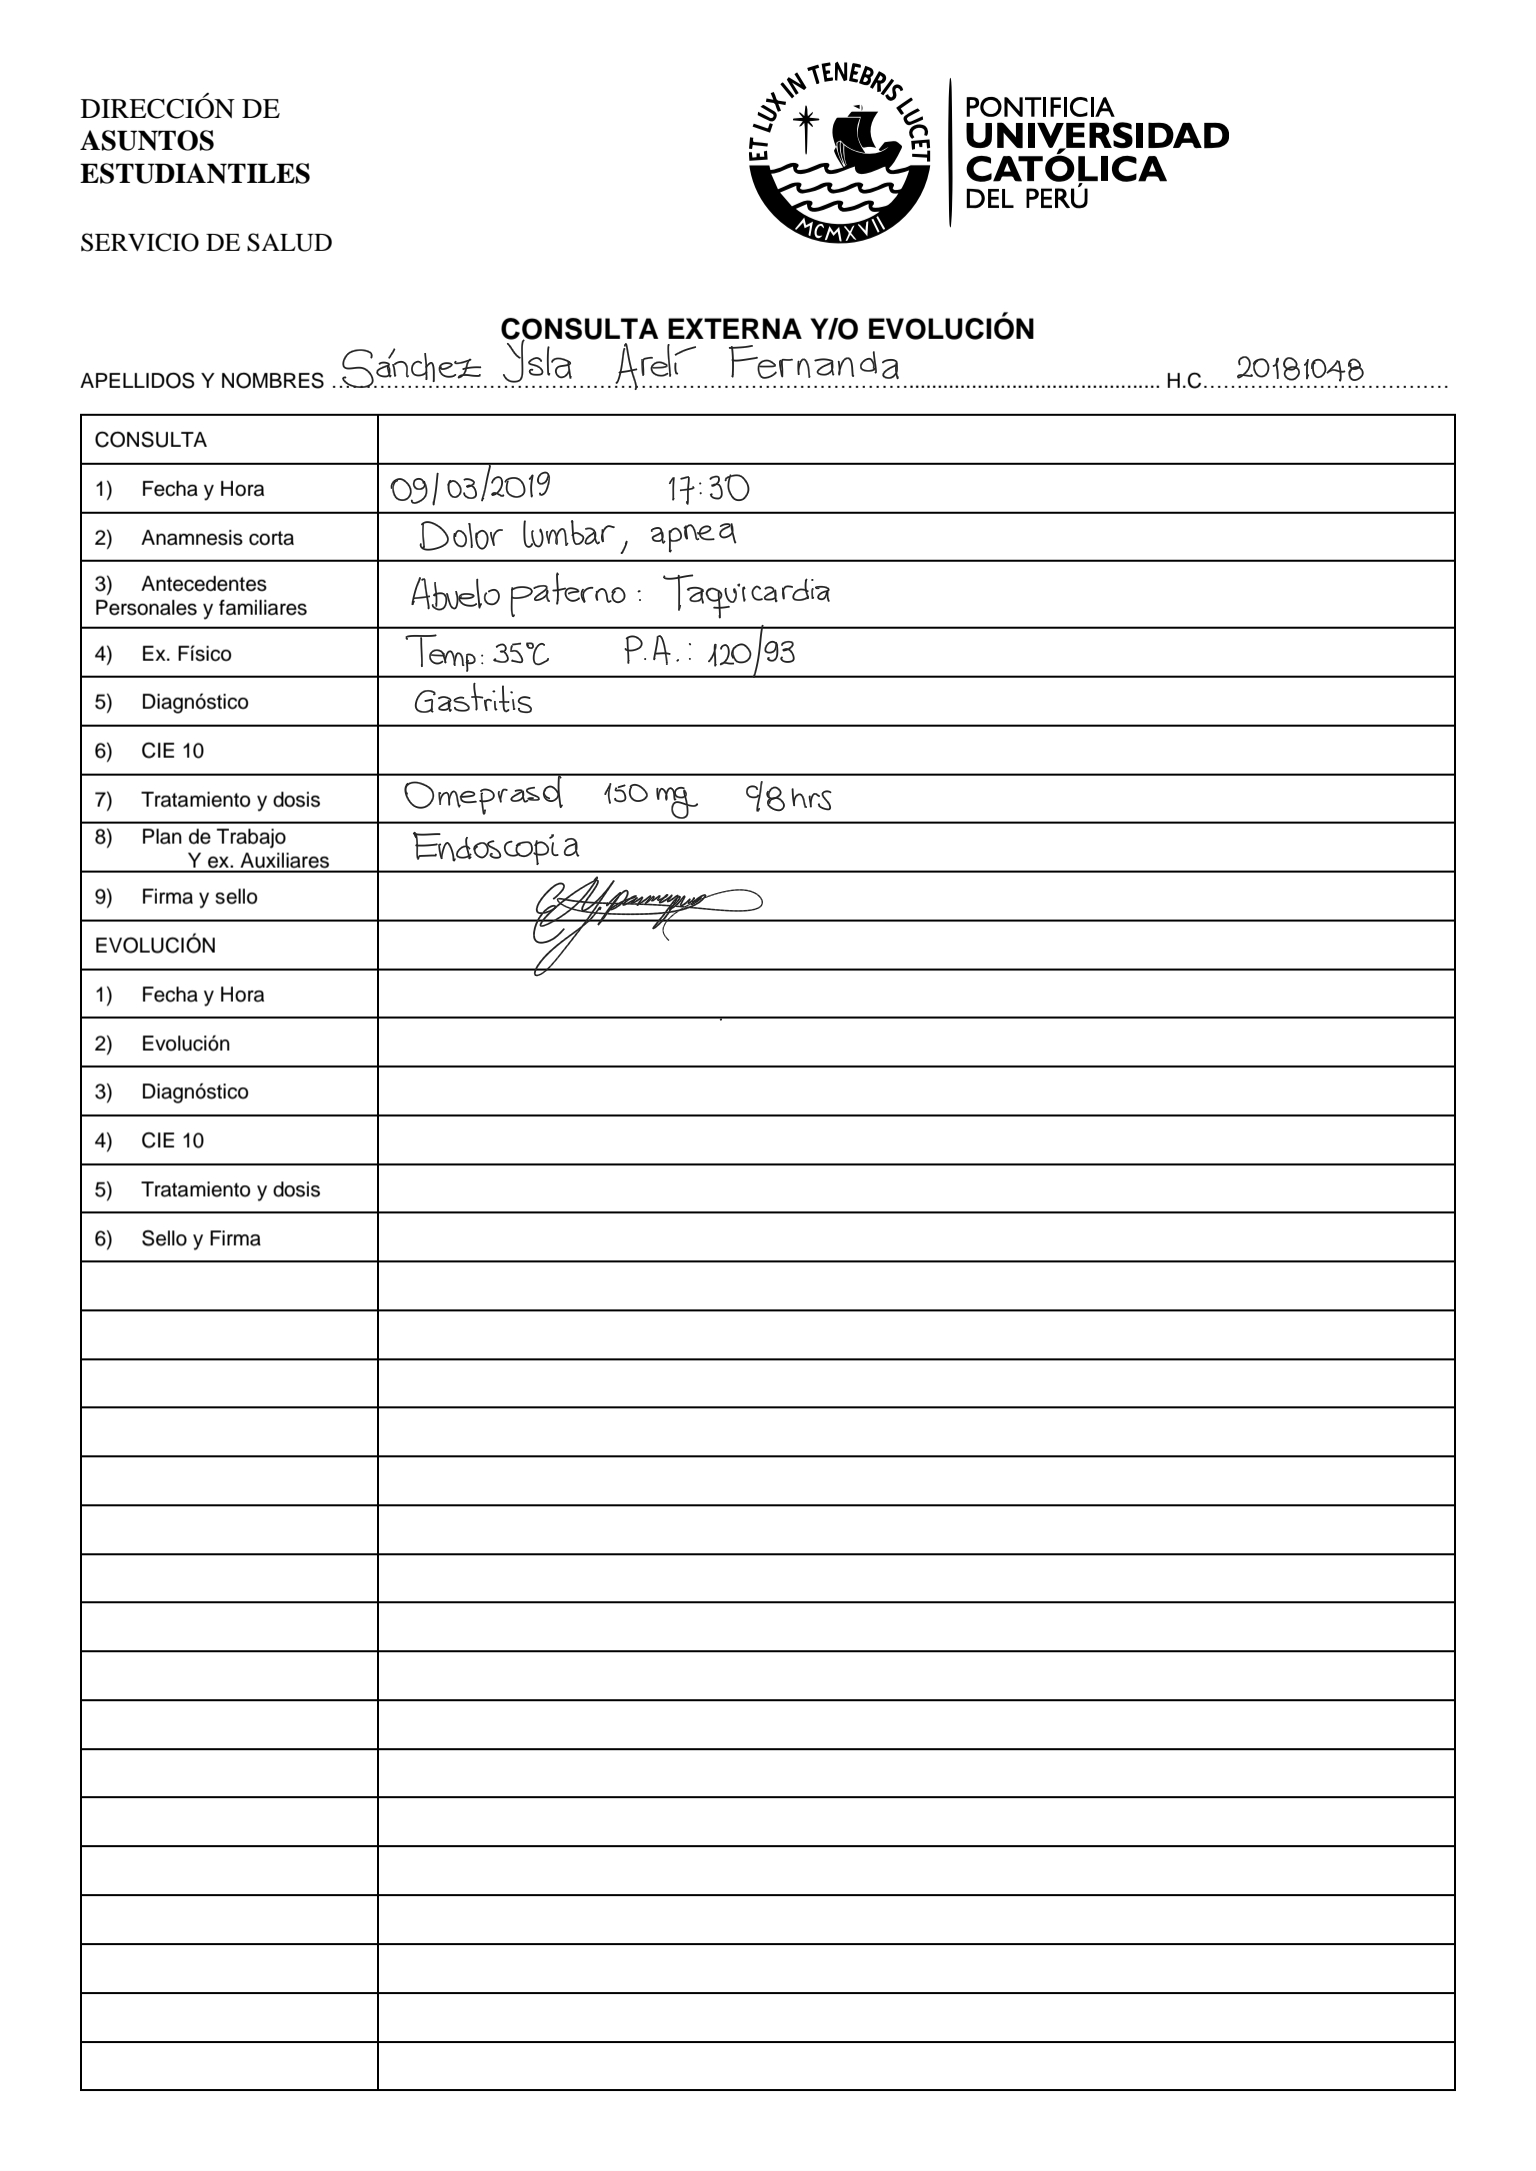 DIRECCIÓN DE
ASUNTOS
ESTUDIANTILES
SERVICIO DE SALUD
ET LUX IN TENEBRIS LUCET
MCMXVII
PONTIFICIA
UNIVERSIDAD
CATÓLICA
DEL PERÚ
CONSULTA EXTERNA Y/O EVOLUCIÓN
APELLIDOS Y NOMBRES Sánchez Ysla Arelí Fernanda H.C. 20181048
CONSULTA
1) Fecha y Hora 09/03/2019 17:30
2) Anamnesis corta Dolor lumbar, apnea
3) Antecedentes
Personales y familiares Abuelo paterno: Taquicardia
4) Ex. Físico Temp: 35°C P.A.: 120/93
5) Diagnóstico Gastritis
6) CIE 10
7) Tratamiento y dosis Omeprasol 150 mg c/8 hrs
8) Plan de Trabajo
Y ex. Auxiliares Endoscopía
9) Firma y sello
EVOLUCIÓN
1) Fecha y Hora
2) Evolución
3) Diagnóstico
4) CIE 10
5) Tratamiento y dosis
6) Sello y Firma